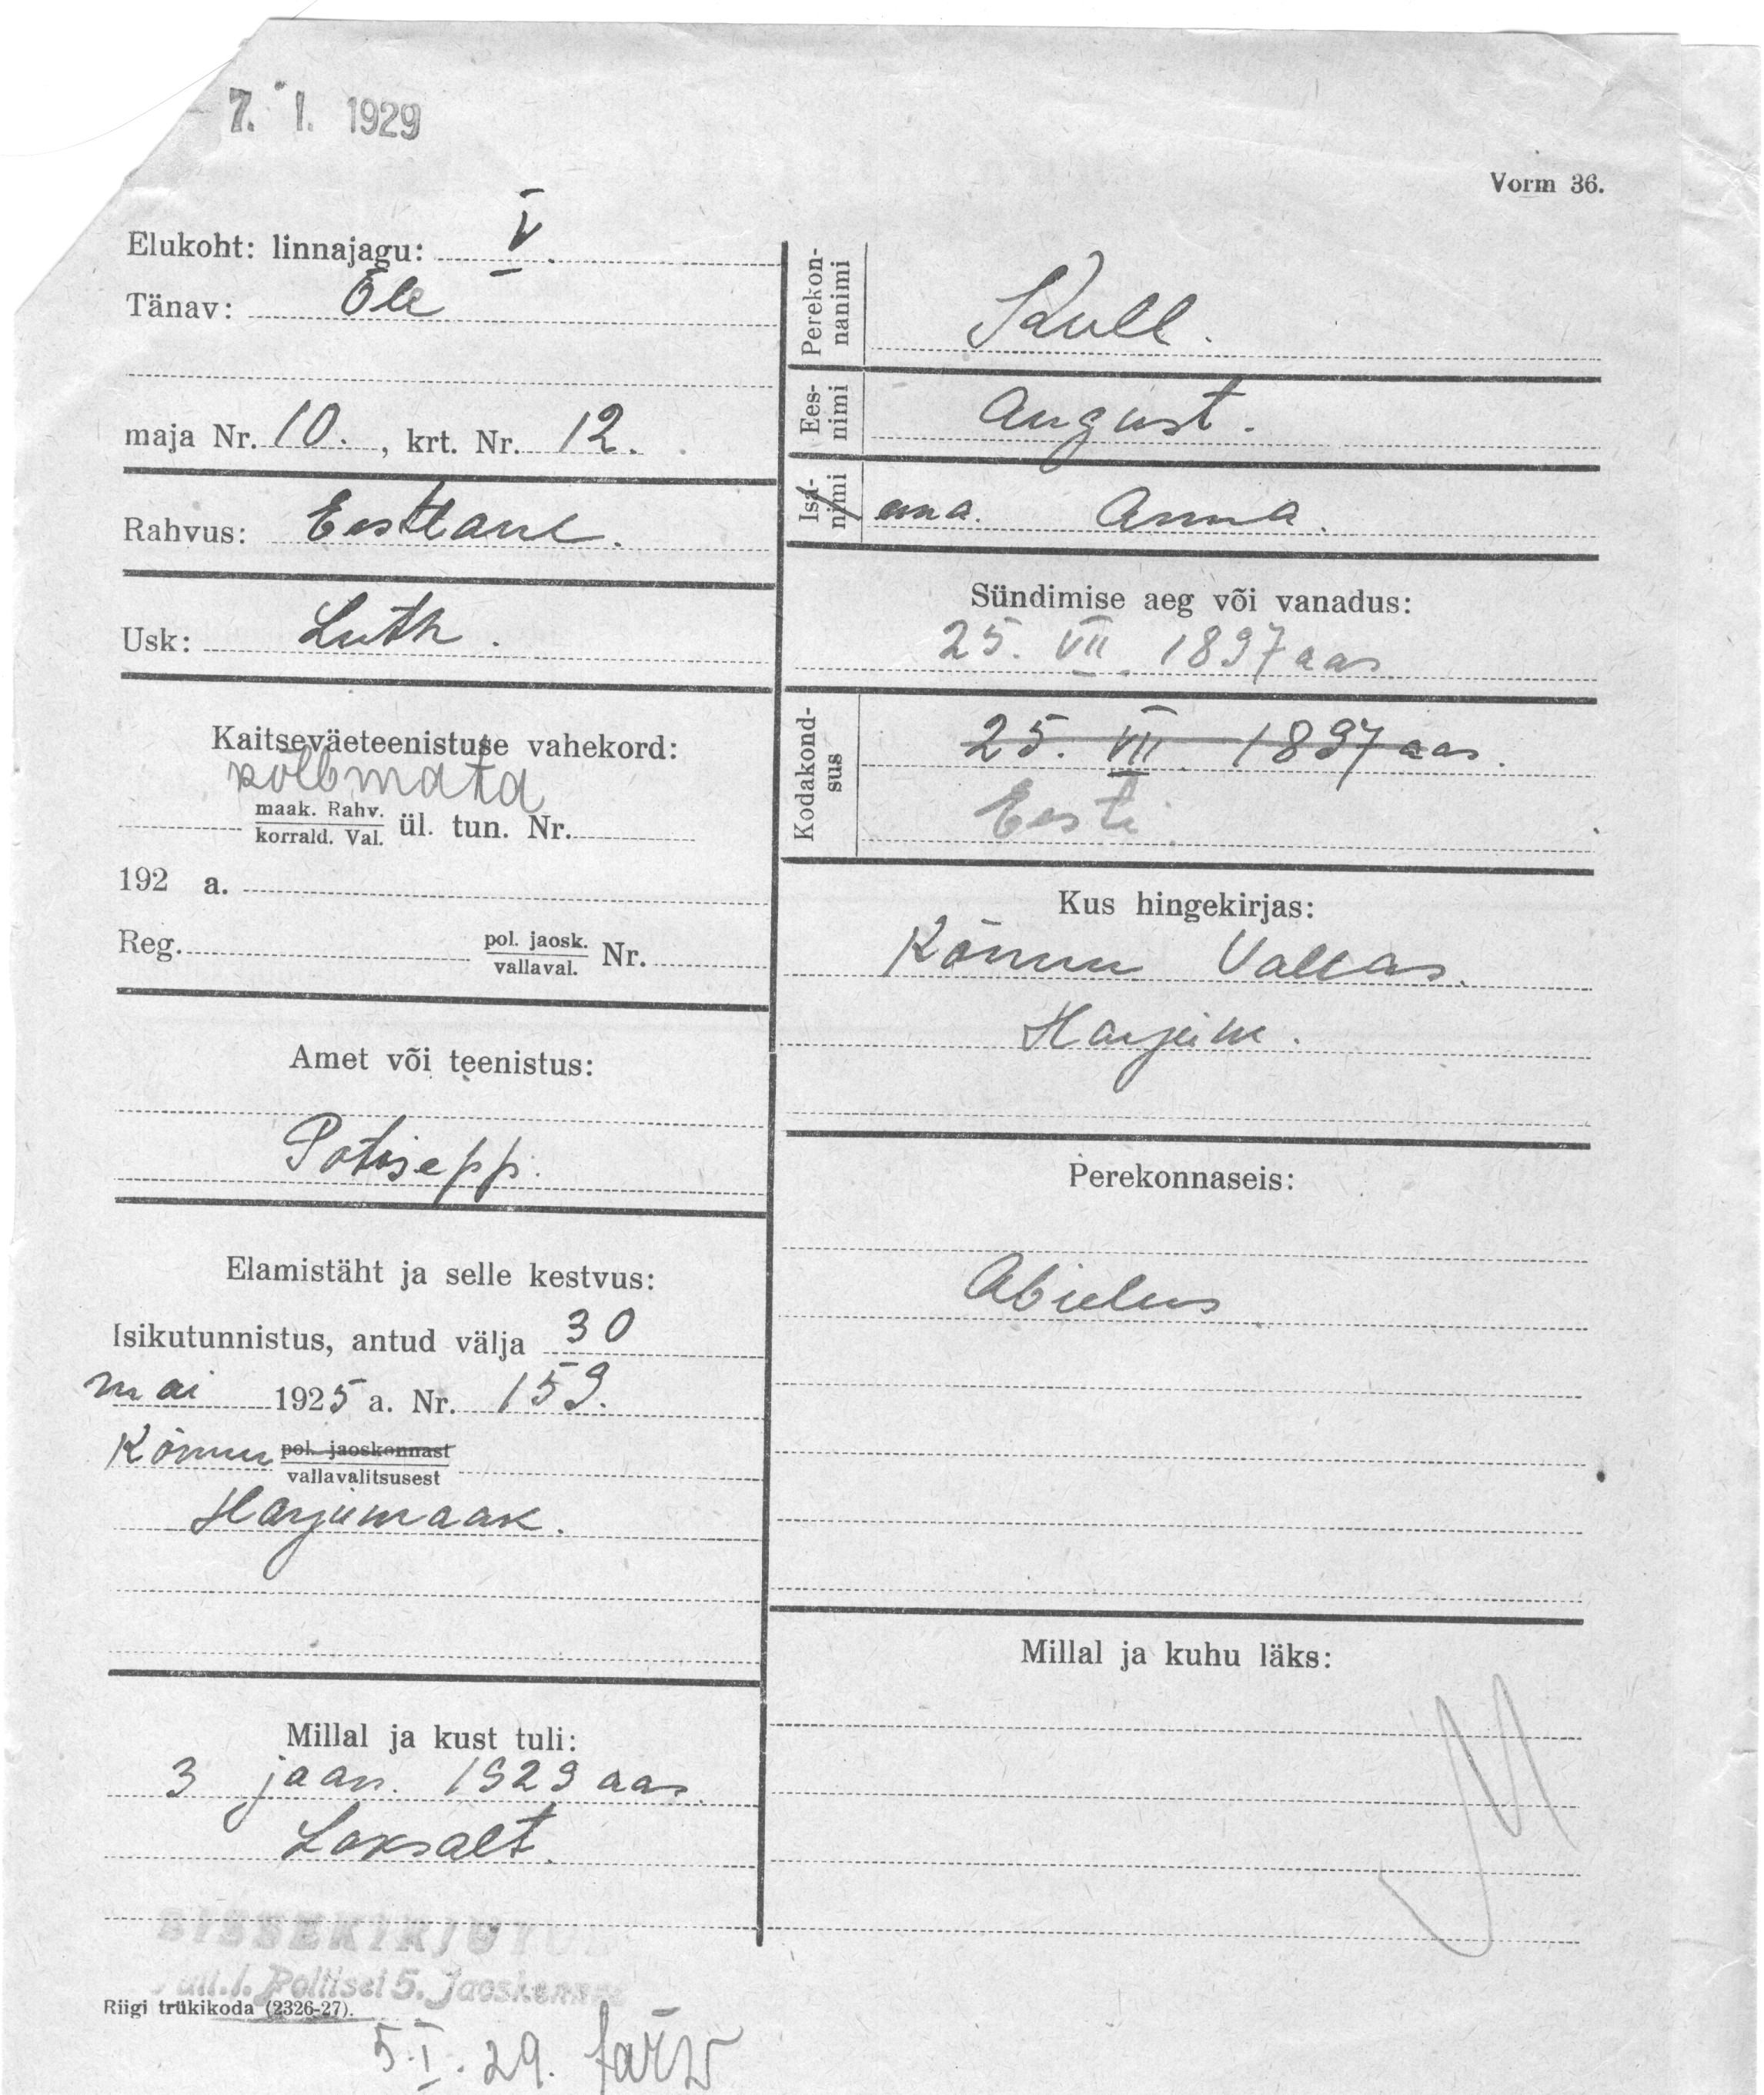 7. I. 1929
Vorm 36.
Elukoht: linnajagu: V.
Tänav: Õle
maja Nr. 10. , krt. Nr. 12.
Rahvus: Eestlane.
Usk: Luth.
Kaitseväeteenistuse vahekord:
kõlbmata
maak. Rahv.
korrald. Val. ül. tun. Nr.
192 a.
Reg. pol. jaosk.
vallaval. Nr.
Amet või teenistus:
Potisepp.
Elamistäht ja selle kestvus:
Isikutunnistus, antud välja 30
mai 1925 a. Nr. 159.
Kõnnu pol. jaoskonnast
vallavalitsusest
Harjumaak.
Millal ja kust tuli:
3 jaan. 1929 aas.
Loksalt.
SISSEKIRJUTUD
Tall. l. Politsei 5. Jaoskonnas
Riigi trükikoda (2326-27).
5.I.29.
Perekon-
nanimi
Kull.
Ees-
nimi
August.
Isa-
nimi
ema. Anna.
Sündimise aeg või vanadus:
25. VII. 1897 aas.
Kodakond-
sus
25. VII. 1897 aas.
Eesti
Kus hingekirjas:
Kõnnu Vallas.
Harjum.
Perekonnaseis:
Abielus
Millal ja kuhu läks: